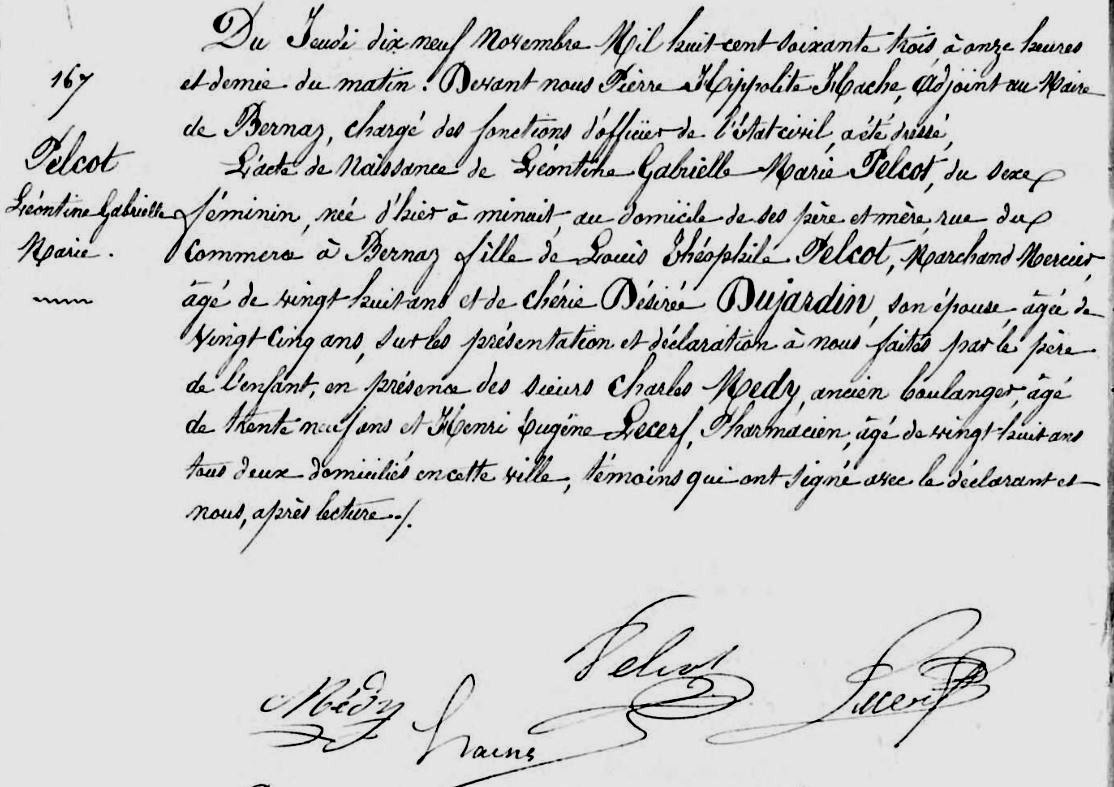 167
Pelcot
Léontine Gabrielle
Marie.
Du Jeudi dix neuf Novembre Mil huit cent soixante trois, à onze heures
et demie du matin. Devant nous Pierre Hippolite Hache, Adjoint au Maire
de Bernay, chargé des fonctions d'officier de l'état civil, a été dressé,
L'acte de Naissance de Léontine Gabrielle Marie Pelcot, du sexe
féminin, née d'hier à minuit, au domicile de ses père et mère, rue du
Commerce à Bernay fille de Louis Théophile Pelcot, Marchand Mercier,
âgé de vingt huit ans et de chérie Désirée Dujardin, son épouse, âgée de
Vingt-Cinq ans, sur les présentation et déclaration à nous faites par le père
de l'enfant, en présence des sieurs Charles Medy, ancien boulanger, âgé
de trente neuf ans et Henri Eugène Lecerf, Pharmacien, âgé de vingt-huit ans
tous deux domiciliés en cette ville, témoins qui ont signé avec le déclarant et
nous, après lecture ./.
Pelcot
Médy
Lecerf